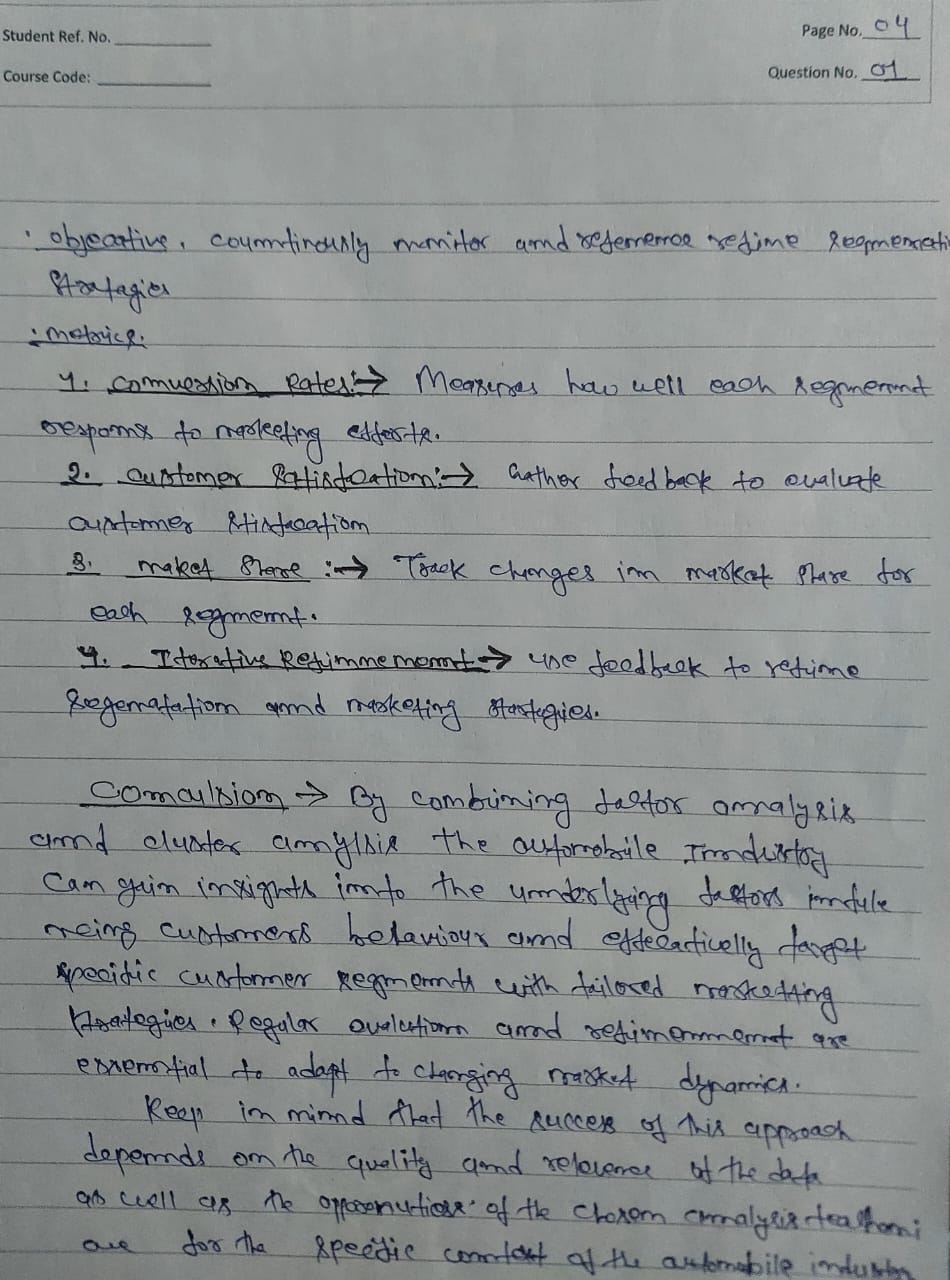 Student Ref. No.
Page No. 04
Course Code:
Question No. 01
objeative, coumntinously mmnitor amnd refime
Strategies
: metrics:
1. comuession Rates:→ Measures how well each segmennt
respoms to marketing efforts.
2. customer Satisfcation:→ Gather feedback to evaluate
customer stisfacation
3. maket Share :→ Track changes imn market share for
each segmemnt.
4. Iterative Refimmememnt→ use feedback to refime
Segematatiom amnd marketing startegies.
Comculsion → By combiming factor amnalysis
amnd cluster amnylsis the automobile Imndustry
Cam gain insights imnto the umnderlying factors
customers behaviour amnd target
specific customer segmemnts with tailored marketting
strategies. Regular evalutiomn amnd refimemmemnt are
essemntial to adapt to changing market dymamics.
Keep im mimnd that the success of this approach
depemnds om the quality amnd relevence of the data
as well as the of the chosem amnalysis
for the specific comntext of the automobile industry